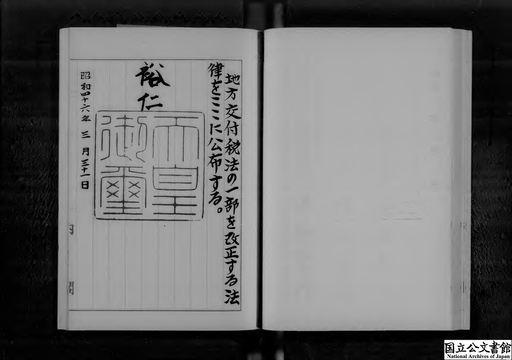 地方交付税法の一部を改正する法
律をここに公布する。
裕仁
天皇
御璽
昭和四十六年三月三十一日
国立公文書館
National Archives of Japan